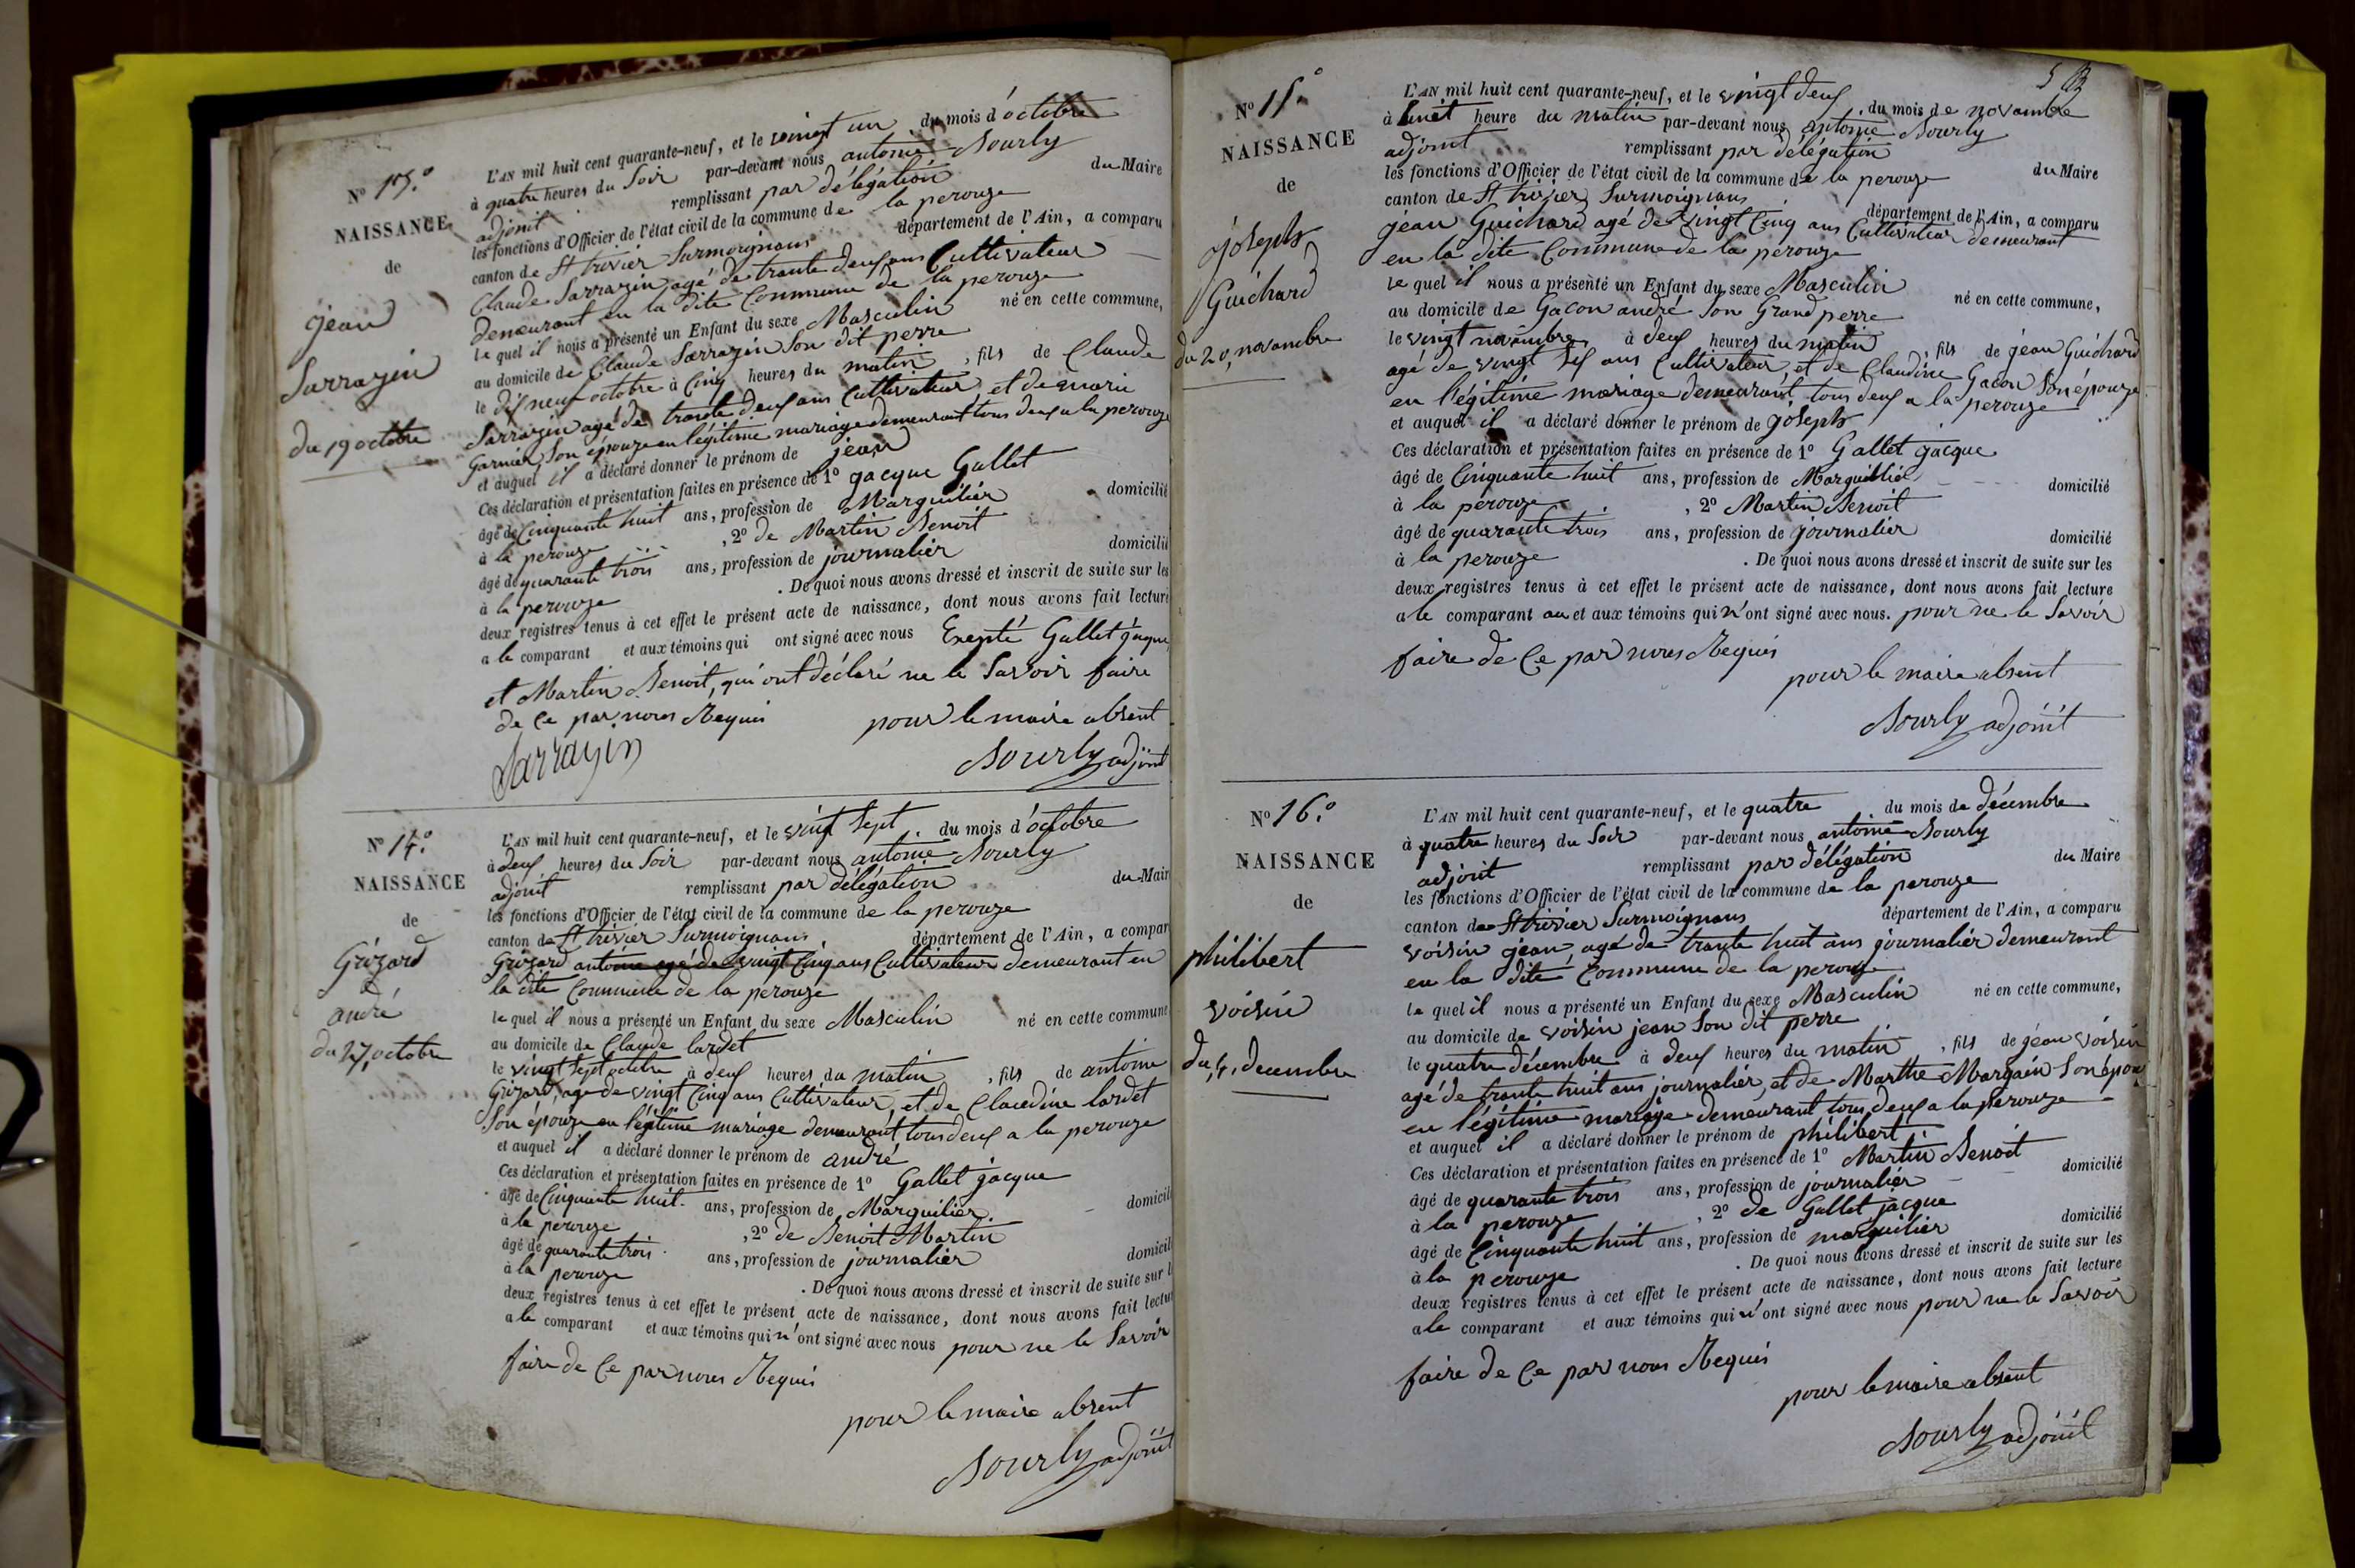 N° 13.°
NAISSANCE
de
jean
Sarrazin
du 19 octobre
L'AN mil huit cent quarante-neuf, et le vingt un du mois d'octobre
à quatre heures du Soir par-devant nous antoine Bourly
adjoint remplissant par délégation du Maire
les fonctions d'Officier de l'état civil de la commune de la perouze
canton de St trivier Surmoignans département de l'Ain, a comparu
Claude Sarrazin agé de trante deux ans Cultivateur
demeurant en la dite Commune de la perouze
le quel il nous a présenté un Enfant du sexe Masculin né en cette commune,
au domicile de Claude Sarrazin Son dit perre
le dix neuf octobre à Cinq heures du matin, fils de Claude
Sarrazin agé de trante deux ans Cultivateur et de marie
Garnier Son épouze en légitime mariage demeurant tous deux a la perouze
et auquel il a déclaré donner le prénom de jean
Ces déclaration et présentation faites en présence de 1° jacque Gallet
âgé de Cinquante huit ans, profession de Marguilier domicilié
à la perouze, 2° de Martin Benoit
âgé de quarante trois ans, profession de journalier domicilié
à la perouze . De quoi nous avons dressé et inscrit de suite sur les
deux registres tenus à cet effet le présent acte de naissance, dont nous avons fait lecture
a le comparant et aux témoins qui ont signé avec nous Exepté Gallet jaque
et Martin Benoit, qui ont déclaré ne le Savoir faire
de Ce par nous Requis pour le maire absent
Sarrazin Bourly adjoint
N° 14.°
NAISSANCE
de
Grizard
andré
du 27, octobre
L'AN mil huit cent quarante-neuf, et le vint Sept du mois d'octobre
à deux heures du Soir par-devant nous antoine Bourly
adjoint remplissant par délégation du Mair
les fonctions d'Officier de l'état civil de la commune de la perouze
canton de St trivier Surmoignans département de l'Ain, a compar
Grizard antoine agé de vingt Cinq ans Cultivateur demeurant en
la dite Commune de la perouze
le quel il nous a présenté un Enfant du sexe Masculin né en cette commune
au domicile de Claude lardet
le vingt Sept octobre à deux heures du matin, fils de antoine
Grizard, age de vingt Cinq ans Cultivateur, et de Claudine lardet
Son épouze en légitime mariage demeurant tous deux a la perouze
et auquel il a déclaré donner le prénom de andré
Ces déclaration et présentation faites en présence de 1° Gallet jacque
âgé de Cinquante huit. ans, profession de Marguilier domicili
à la perouze, 2° de Benoit Martin
âgé de quarante trois ans, profession de journalier domicili
à la perouze . De quoi nous avons dressé et inscrit de suite sur l
deux registres tenus à cet effet le présent acte de naissance, dont nous avons fait lectur
a le comparant et aux témoins qui n'ont signé avec nous pour ne le Savoir
faire de Ce par nous Requis
pour le maire absent
Bourly adjoint
N° 15.°
NAISSANCE
de
joseph
Guichard
du 20, novembre
L'AN mil huit cent quarante-neuf, et le vingt deux du mois de novembre
à huit heure du matin par-devant nous antoine Bourly
adjoint remplissant par délégation du Maire
les fonctions d'Officier de l'état civil de la commune de la perouze
canton de St trivier Surmoignans département de l'Ain, a comparu
jean Guichard agé de vingt Cinq ans Cultivateur demeurant
en la dite Commune de la perouze
le quel il nous a présenté un Enfant du sexe Masculin né en cette commune,
au domicile de Gacon andré Son Grand perre
le vingt novembre à deux heures du matin, fils de jean Guichard
agé de vingt ans Cultivateur, et de Claudine Gacon Son épouze
en légitime mariage demeurant tous deux a la perouze
et auquel il a déclaré donner le prénom de joseph
Ces déclaration et présentation faites en présence de 1° Gallet jacque
âgé de Cinquante huit ans, profession de Marguillié domicilié
à la perouze, 2° Martin Benoit
âgé de quarante trois ans, profession de journalier domicilié
à la perouze . De quoi nous avons dressé et inscrit de suite sur les
deux registres tenus à cet effet le présent acte de naissance, dont nous avons fait lecture
a le comparant et aux témoins qui n'ont signé avec nous. pour ne le Savoir
faire de Ce par nous Requis
pour le maire absent
Bourly adjoint
N° 16.°
NAISSANCE
de
philibert
voisin
du, 4, decembre
L'AN mil huit cent quarante-neuf, et le quatre du mois de décembre
à quatre heures du Soir par-devant nous antoine Bourly
adjoint remplissant par délégation du Maire
les fonctions d'Officier de l'état civil de la commune de la perouze
canton de St trivier Surmoignans département de l'Ain, a comparu
voisin jean, agé de trante huit ans journalier demeurant
en la dite Commune de la perouze
le quel il nous a présenté un Enfant du sexe Masculin né en cette commune,
au domicile de voisin jean Son dit perre
le quatre décembre à deux heures du matin, fils de jean voisin
agé de trante huit ans journalier, et de Marthe Margain Son épou
en légitime mariage demeurant tous deux a la perouze
et auquel il a déclaré donner le prénom de philibert
Ces déclaration et présentation faites en présence de 1° Martin Benoit
âgé de quarante trois ans, profession de journalier domicilié
à la perouze, 2° de Gallet jacque
âgé de Cinquante huit ans, profession de marguilier domicilié
à la perouze . De quoi nous avons dressé et inscrit de suite sur les
deux registres tenus à cet effet le présent acte de naissance, dont nous avons fait lecture
a le comparant et aux témoins qui n'ont signé avec nous pour ne le Savoir
faire de Ce par nous Requis
pour le maire absent
Bourly adjoint